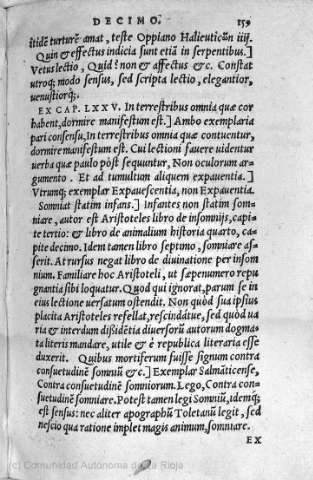 DECIMO. 159
itidẽ turturẽ amat, teste Oppiano Halieuticῶn iiij.
Quin & effectus indicia sunt etiã in serpentibus.]
Vetus lectio, Quid? non & affectus &c. Constat
utroq; modo sensus, sed scripta lectio, elegantior,
uenustiorq;.
EX CAP. LXXV. In terrestribus omnia quæ cor
habent, dormire manifestum est.] Ambo exemplaria
pari consensu, In terrestribus omnia quæ contuentur,
dormire manifestum est. Cui lectioni fauere uidentur
uerba quæ paulo pòst sequuntur, Non oculorum ar-
gumento. Et ad tumultum aliquem expauentia.]
Vtrunq; exemplar Expauescentia, non Expauentia.
Somniat statim infans.] Infantes non statim som-
niare, autor est Aristoteles libro de insomnijs, capi-
te tertio: & libro de animalium historia quarto, ca-
pite decimo. Idem tamen libro septimo, somniare as-
serit. At rursus negat libro de diuinatione per insom
nium. Familiare hoc Aristoteli, ut sæpenumero repu
gnantia sibi loquatur. Quod qui ignorat, parum se in
eius lectione uersatum ostendit. Non quòd sua ipsius
placita Aristoteles refellat, rescindatue, sed quòd ua
ria & interdum dißidẽtia diuersorũ autorum dogma
ta literis mandare, utile & è republica literaria esse
duxerit. Quibus mortiferum fuisse signum contra
consuetudinẽ somnũ &c.] Exemplar Salmãticense,
Contra consuetudinẽ somniorum. Lego, Contra con-
suetudinẽ somniare. Potest tamen legi Somniũ, idemq;
est sensus: nec aliter apographũ Toletanũ legit, sed
nescio qua ratione implet magis animum, somniare.
EX
(c) Comunidad Autónoma de La Rioja